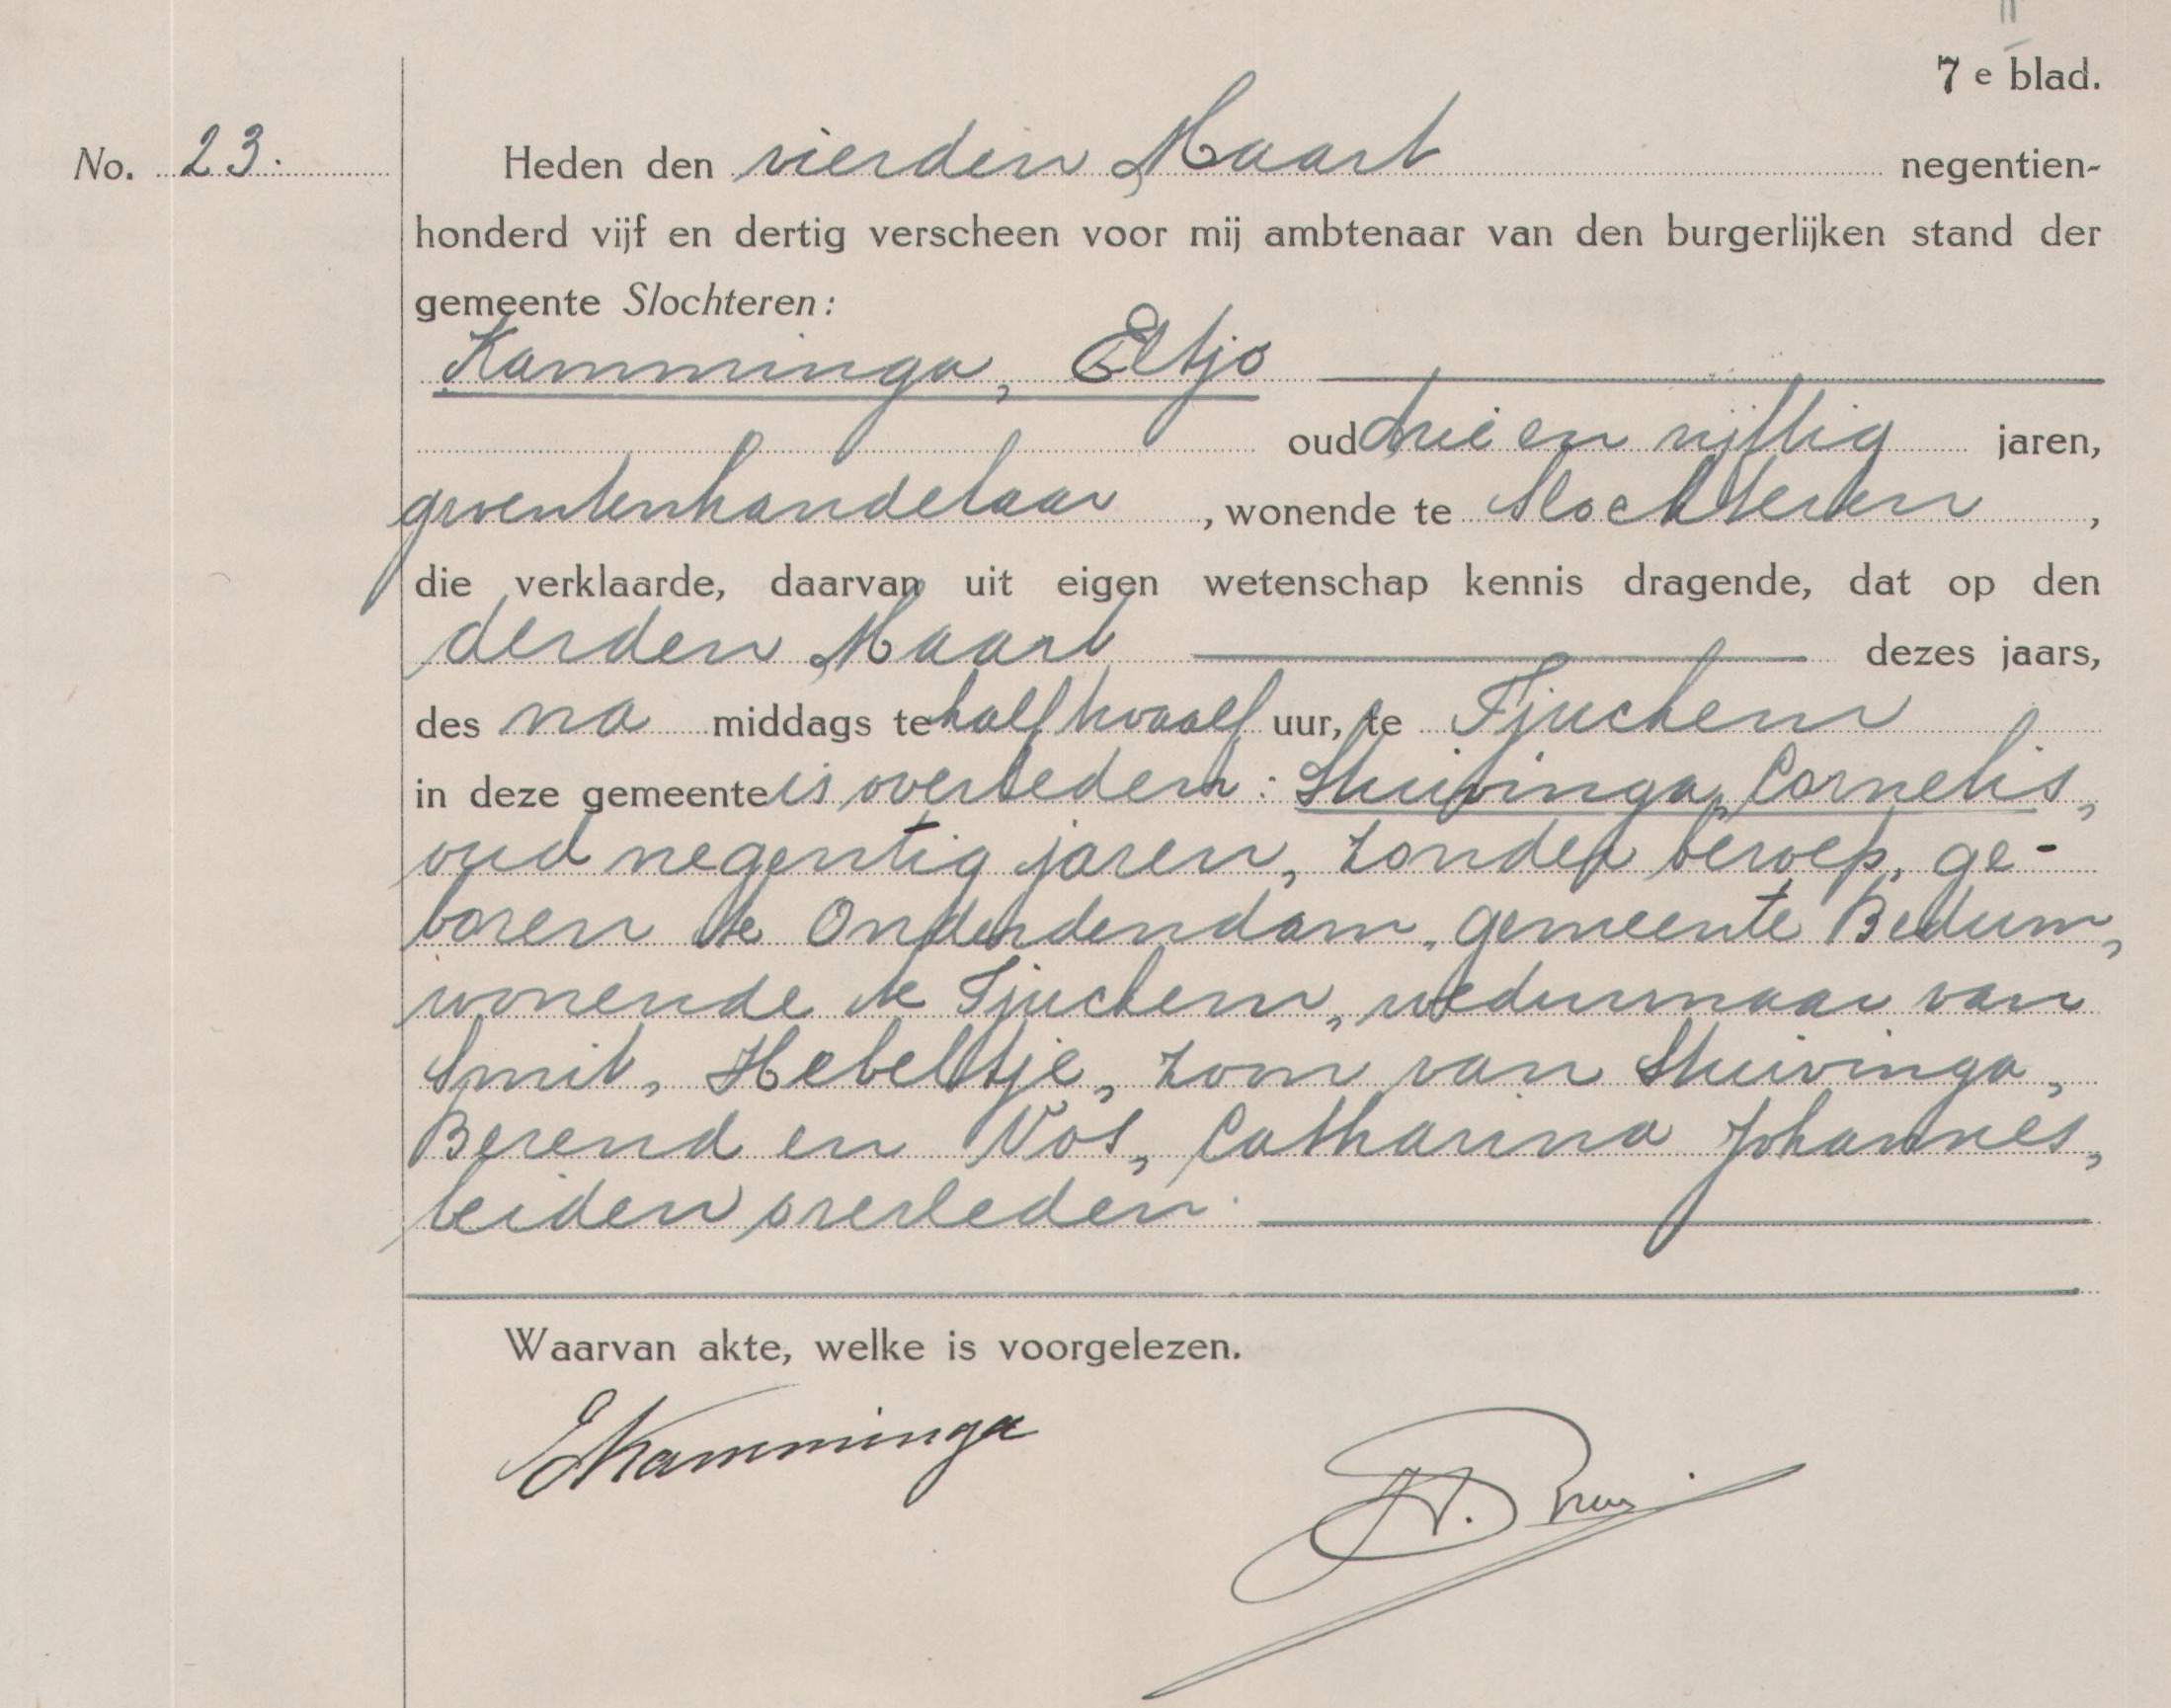 7e blad.
No. 23.
Heden den vierden Maart negentien-
honderd vijf en dertig verscheen voor mij ambtenaar van den burgerlijken stand der
gemeente Slochteren:
Kamminga, Eltjo
oud drie en vijftig jaren,
groentenhandelaar, wonende te Slochteren,
die verklaarde, daarvan uit eigen wetenschap kennis dragende, dat op den
derden Maart dezes jaars,
des na middags te half twaalf uur, te Tjuchem
in deze gemeente is overleden: Stuivinga, Cornelis,
oud negentig jaren, zonder beroep, ge-
boren te Onderdendam, gemeente Bedum,
wonende te Tjuchem, weduwnaar van
Smit, Hebeltje, zoon van Stuivinga,
Berend en Vos, Catharina Johannes,
beiden overleden.
Waarvan akte, welke is voorgelezen.
EKamminga